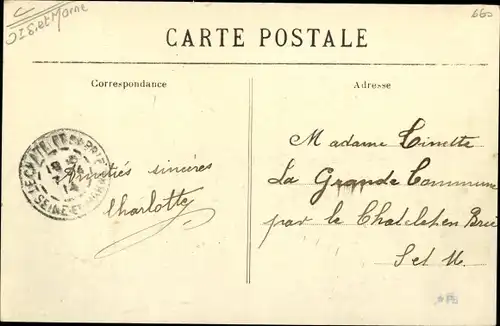 S. et Marne
660
CARTE POSTALE
Correspondance
Adresse
LE CHATELET-EN-BRIE
SEINE-ET-MARNE
Amitiés sincères
Charlotte
Madame Linette
La Grande Commune
par le Chatelet en Brie
S et M.